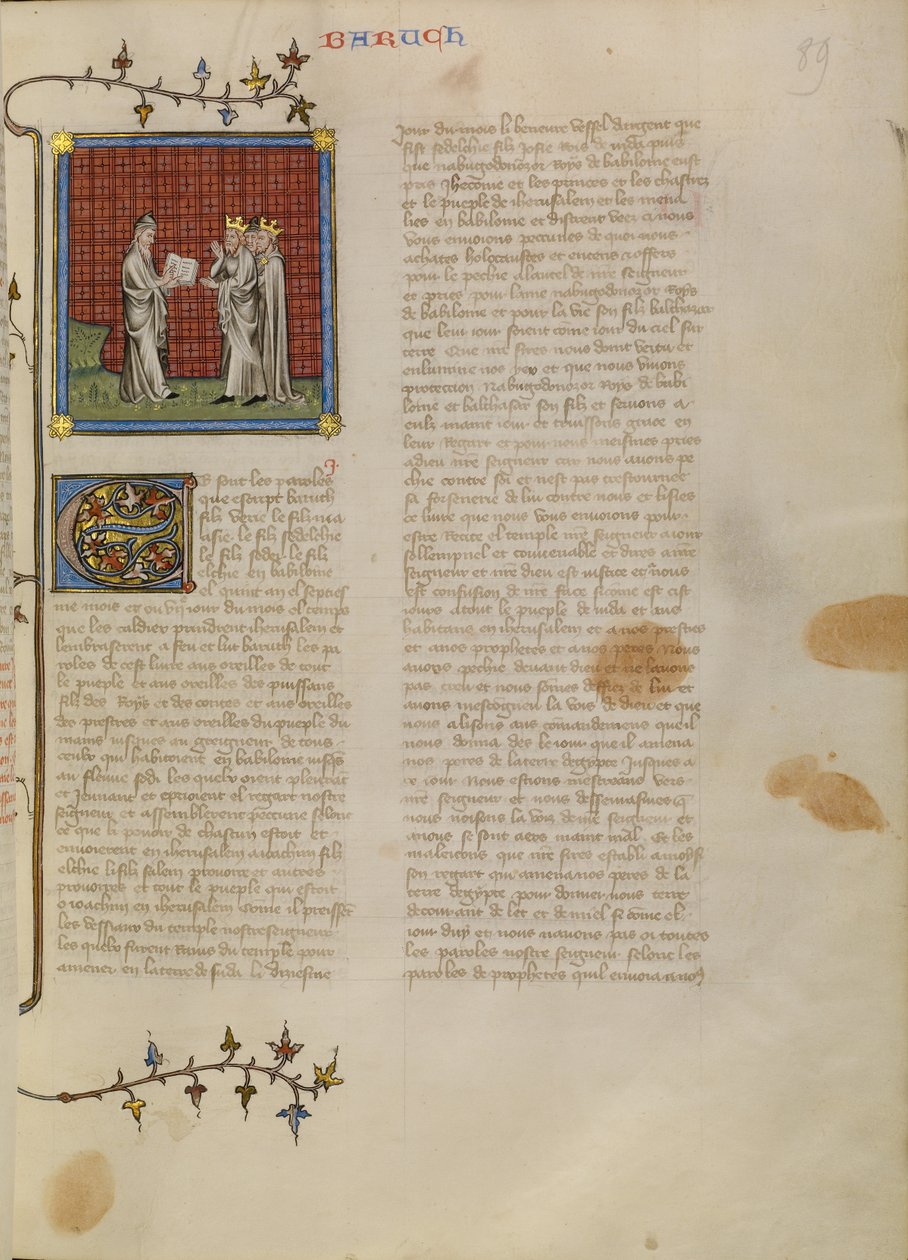 BARUCH
89
J.
E sont les paroles
que escript baruth
filz nerie le filz ma
asie le filz sedelchie
le filz sedei le filz
elchie en babiloine
el quint an el septies
me mois et ou vij jour du mois el temps
que les caldier prindrent iherusalem et
lembraserent a feu et lut baruth les pa
roles de cest livre aus oreilles de tout
le pueple et aus oreilles des puissans
filz des Roys et des contes et aus oreilles
des prestres et aus oreilles du pueple du
mains jusques au greigneur de tous
ceulx qui habitoient en babiloine jusqs
au fleuve sodi les quelx oient plourant
et Jeunant et eprioient el regart nostre
seigneur et assemblerent peccune selonc
ce que li pouoir de chascun estoit et
envoierent en iherusalem a ioachim filz
elchie li filz salem prouoire et autres
prouoires et tout le pueple qui estoit
o ioachim en iherusalem come il preissent
les vessiaux du temple nostre seigneur
les quelx furent Ravis du temple pour
amener en la terre de Juda le diziesme
jour du mois li beneure vessel dargent que
fist sedelchie filz Josie Rois de iuda puis
que nabugodonozor Roys de babiloine eust
pris Jheconie et les princes et les chastrez
et le pueple de iherusalem et les mena
liez en babiloine et distrent veez ci nous
vous envoions peccunes de quoi nous
achates holocaustes et encens et offers
pour le pechie a lautel de nre seigneur
et pries pour lame nabugodonozor Roys
de babiloine et pour la vie son filz balthazar
que leur iour soient come iour du ciel sur
terre Que nre sires nous doint vertu et
enlumine nos yex et que nous vivions
protection Nabugodonozor Roys de babi
loine et balthasar son filz et servons a
eulz maint iour et truissons grace en
leur Regart et pour nous meismes pries
a dieu nre seigneur car nous avons pe
chie contre soi et nest pas trestournee
sa forsenerie de lui contre nous et lisies
ce livre que nous vous envoions pour
estre Recite el temple nre seigneur a iour
sollempnel et convenable et dires a nre
seigneur et nre dieu est iustice et a nous
est confusion de nre face si come est cist
iours a tout le pueple de iuda et aus
habitans en iherusalem et a nos prestres
et a nos prophetes et a nos peres Nous
avons pechie devant dieu et ne lavons
pas creu et nous somes deffiez de lui et
avons mescogneu la vois de dieu et que
nous alissons aus comandemens que il
nous donna des le iour que il amena
nos peres de la terre degypte Jusques a
ce iour Nous estions mescreans vers
nre seigneur et nous dessevrasmes q
nous noissons la voiz de nre seigneur et
a nous se sont aers maint mal Et les
maleicons que nre sires establi a moysi
son regart qui amena nos peres de la
terre degypte pour donner nous terre
decourant de let et de miel si come el
iour duy et nous navons pas oi toutes
les paroles nostre seigneur selonc les
paroles de prophetes quil envoia a nos